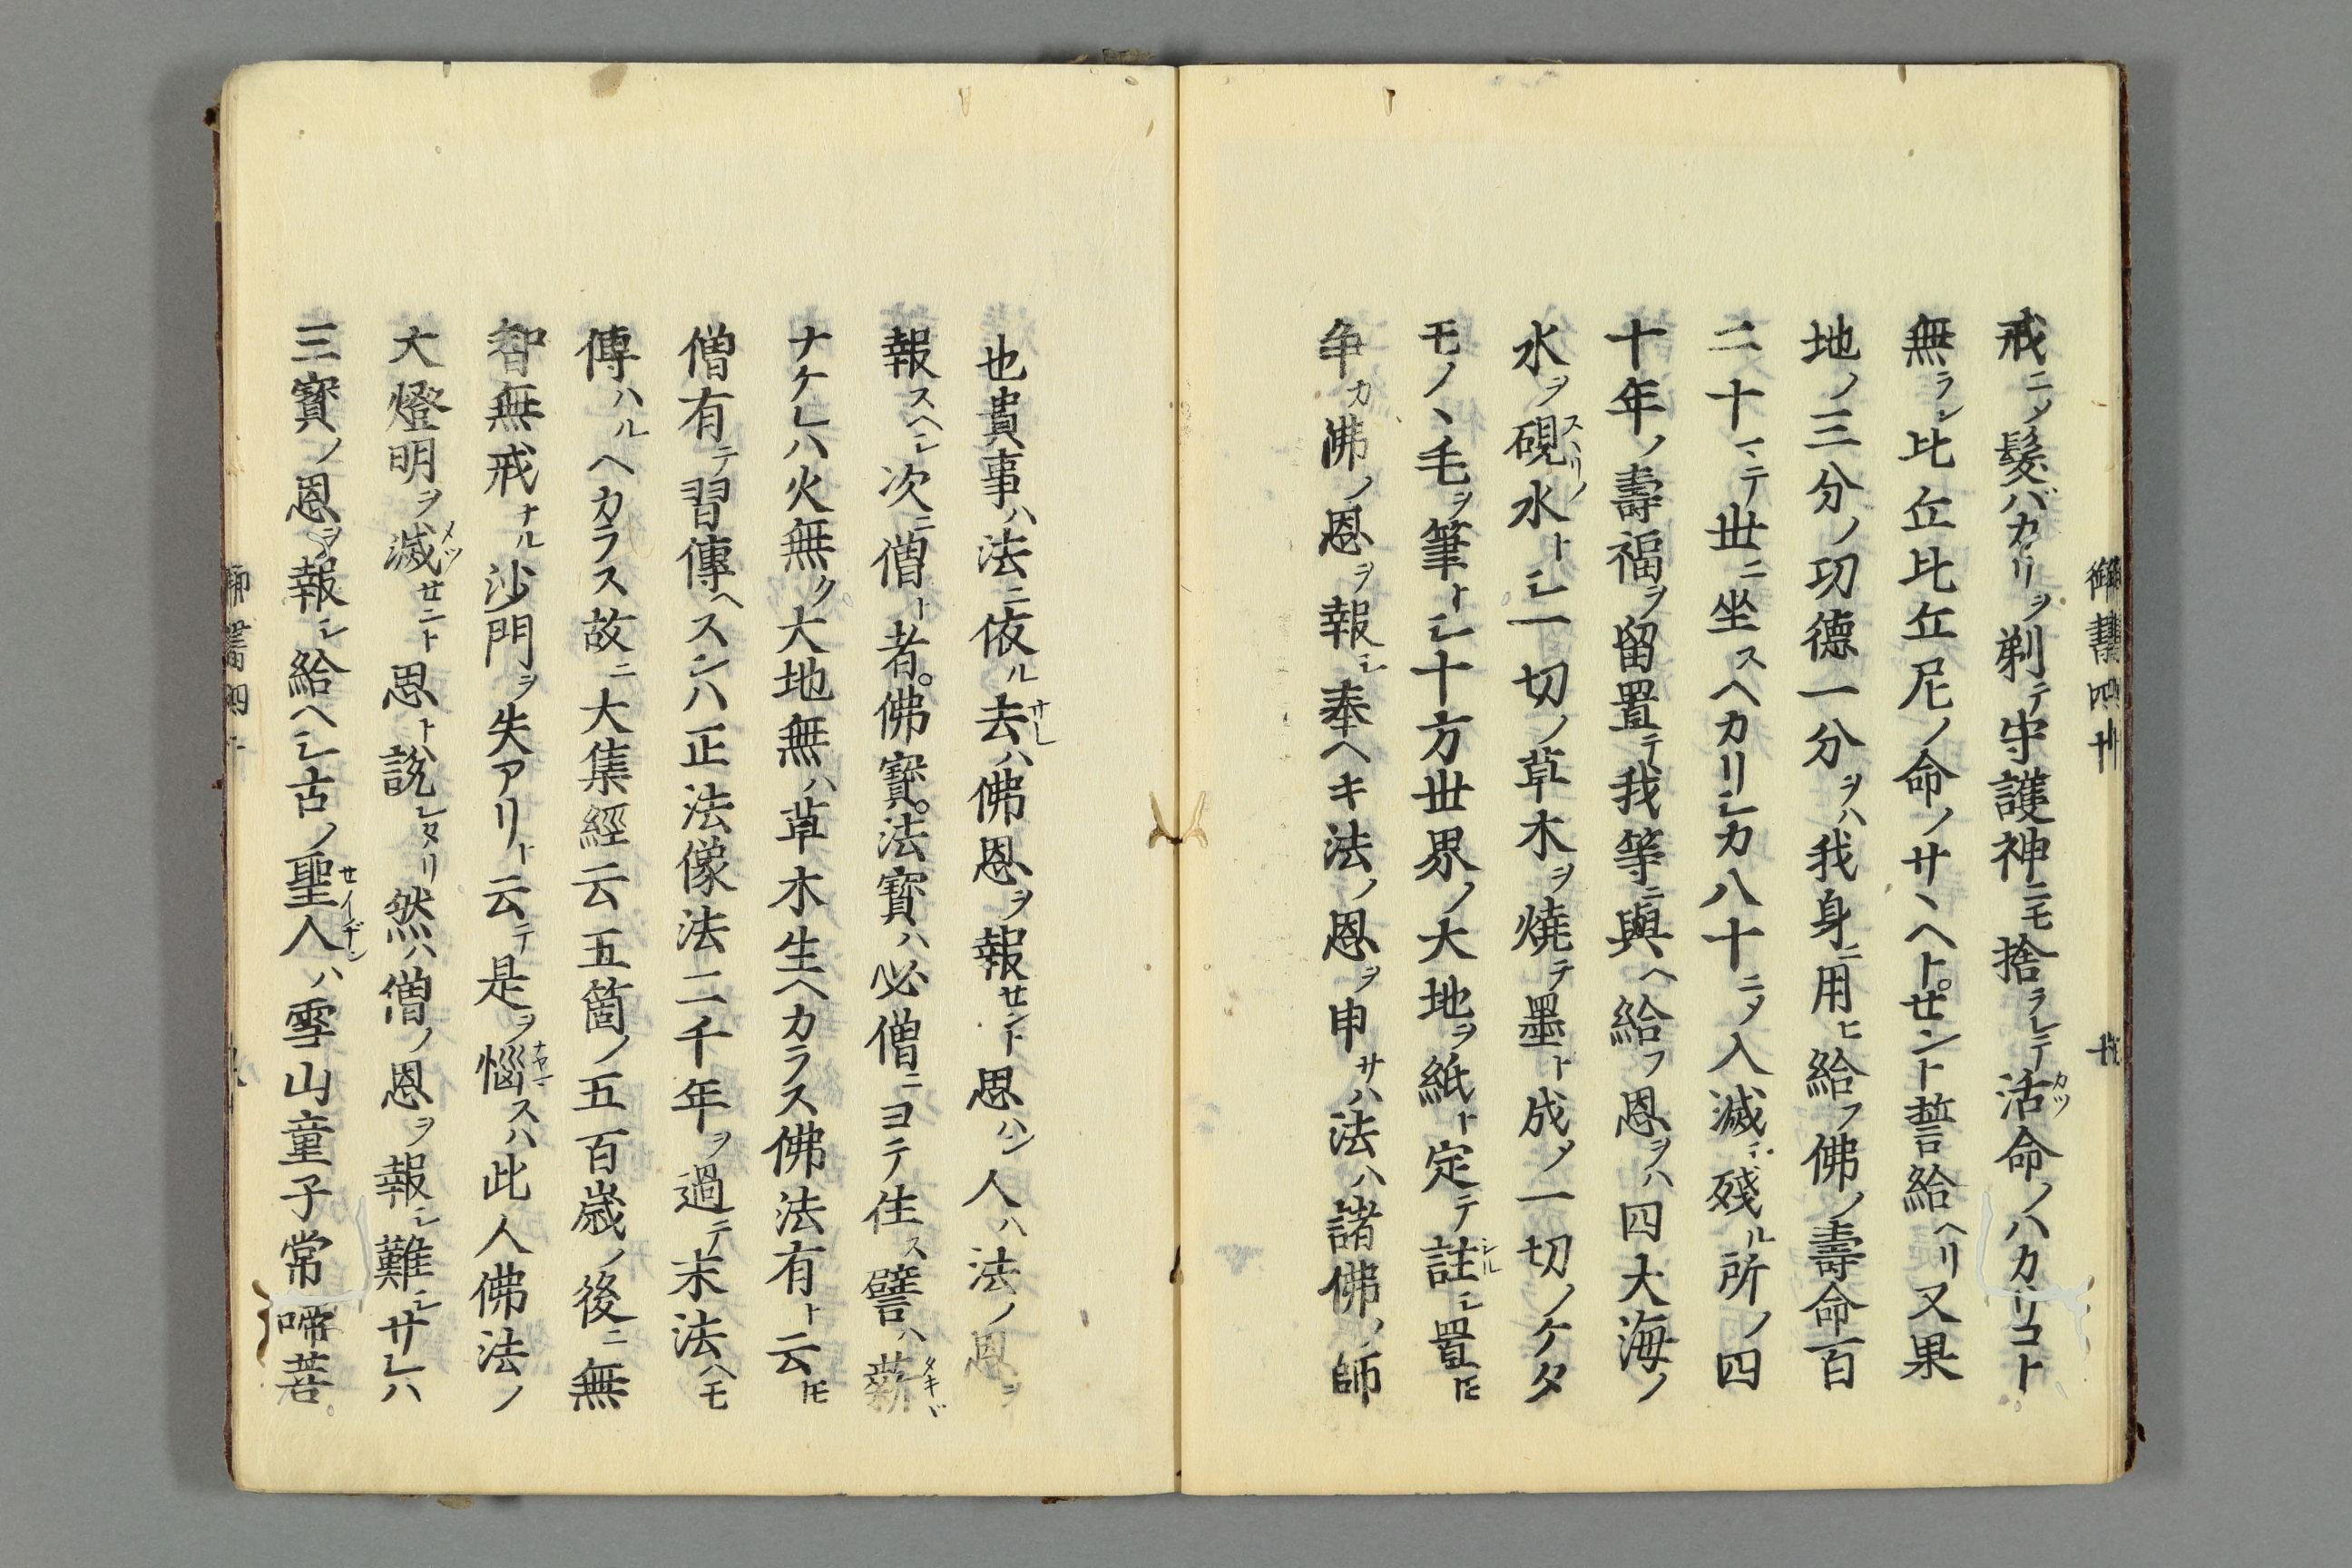 戒ニ〆髪バカリヲ剃テ守護神ニモ捨ラレテ活命ノハカリコト
無ラン比丘比丘尼ノ命ノサヽヘトセント誓給ヘリ又果
地ノ三分ノ功德一分ヲハ我身ニ用ヒ給フ佛ノ壽命百
二十マテ世ニ坐スヘカリシカ八十ニ〆入滅シ殘ル所ノ四
十年ノ壽福ヲ留置テ我等ニ與ヘ給フ恩ヲハ四大海ノ
水ヲ硯水トシ一切ノ草木ヲ燒テ墨ト成〆一切ノケタ
モノヽ毛ヲ筆トシ十方世界ノ大地ヲ紙ト定テ註シ置𪜈
争カ佛ノ恩ヲ報シ奉ヘキ法ノ恩ヲ申サハ法ハ諸佛ノ師
也貴事ハ法ニ依ル去ハ佛恩ヲ報セント思ハン人ハ法ノ恩ヲ
報スヘシ次ニ僧ト者佛寳法寳ハ必僧ニヨテ住ス譬ハ薪
ナケレハ火無ク大地無ハ草木生ヘカラス佛法有ト云𪜈
僧有テ習傳ヘスンハ正法像法二千年ヲ過テ末法ヘモ
傳ハルヘカラス故ニ大集經云五箇ノ五百歳ノ後ニ無
智無戒ナル沙門ヲ失アリト云テ是ヲ惱スハ此人佛法ノ
大燈明ヲ滅セント思ト説レタリ然ハ僧ノ恩ヲ報シ難シサレハ
三寳ノ恩ヲ報シ給ヘシ古ノ聖人ハ雪山童子常啼菩